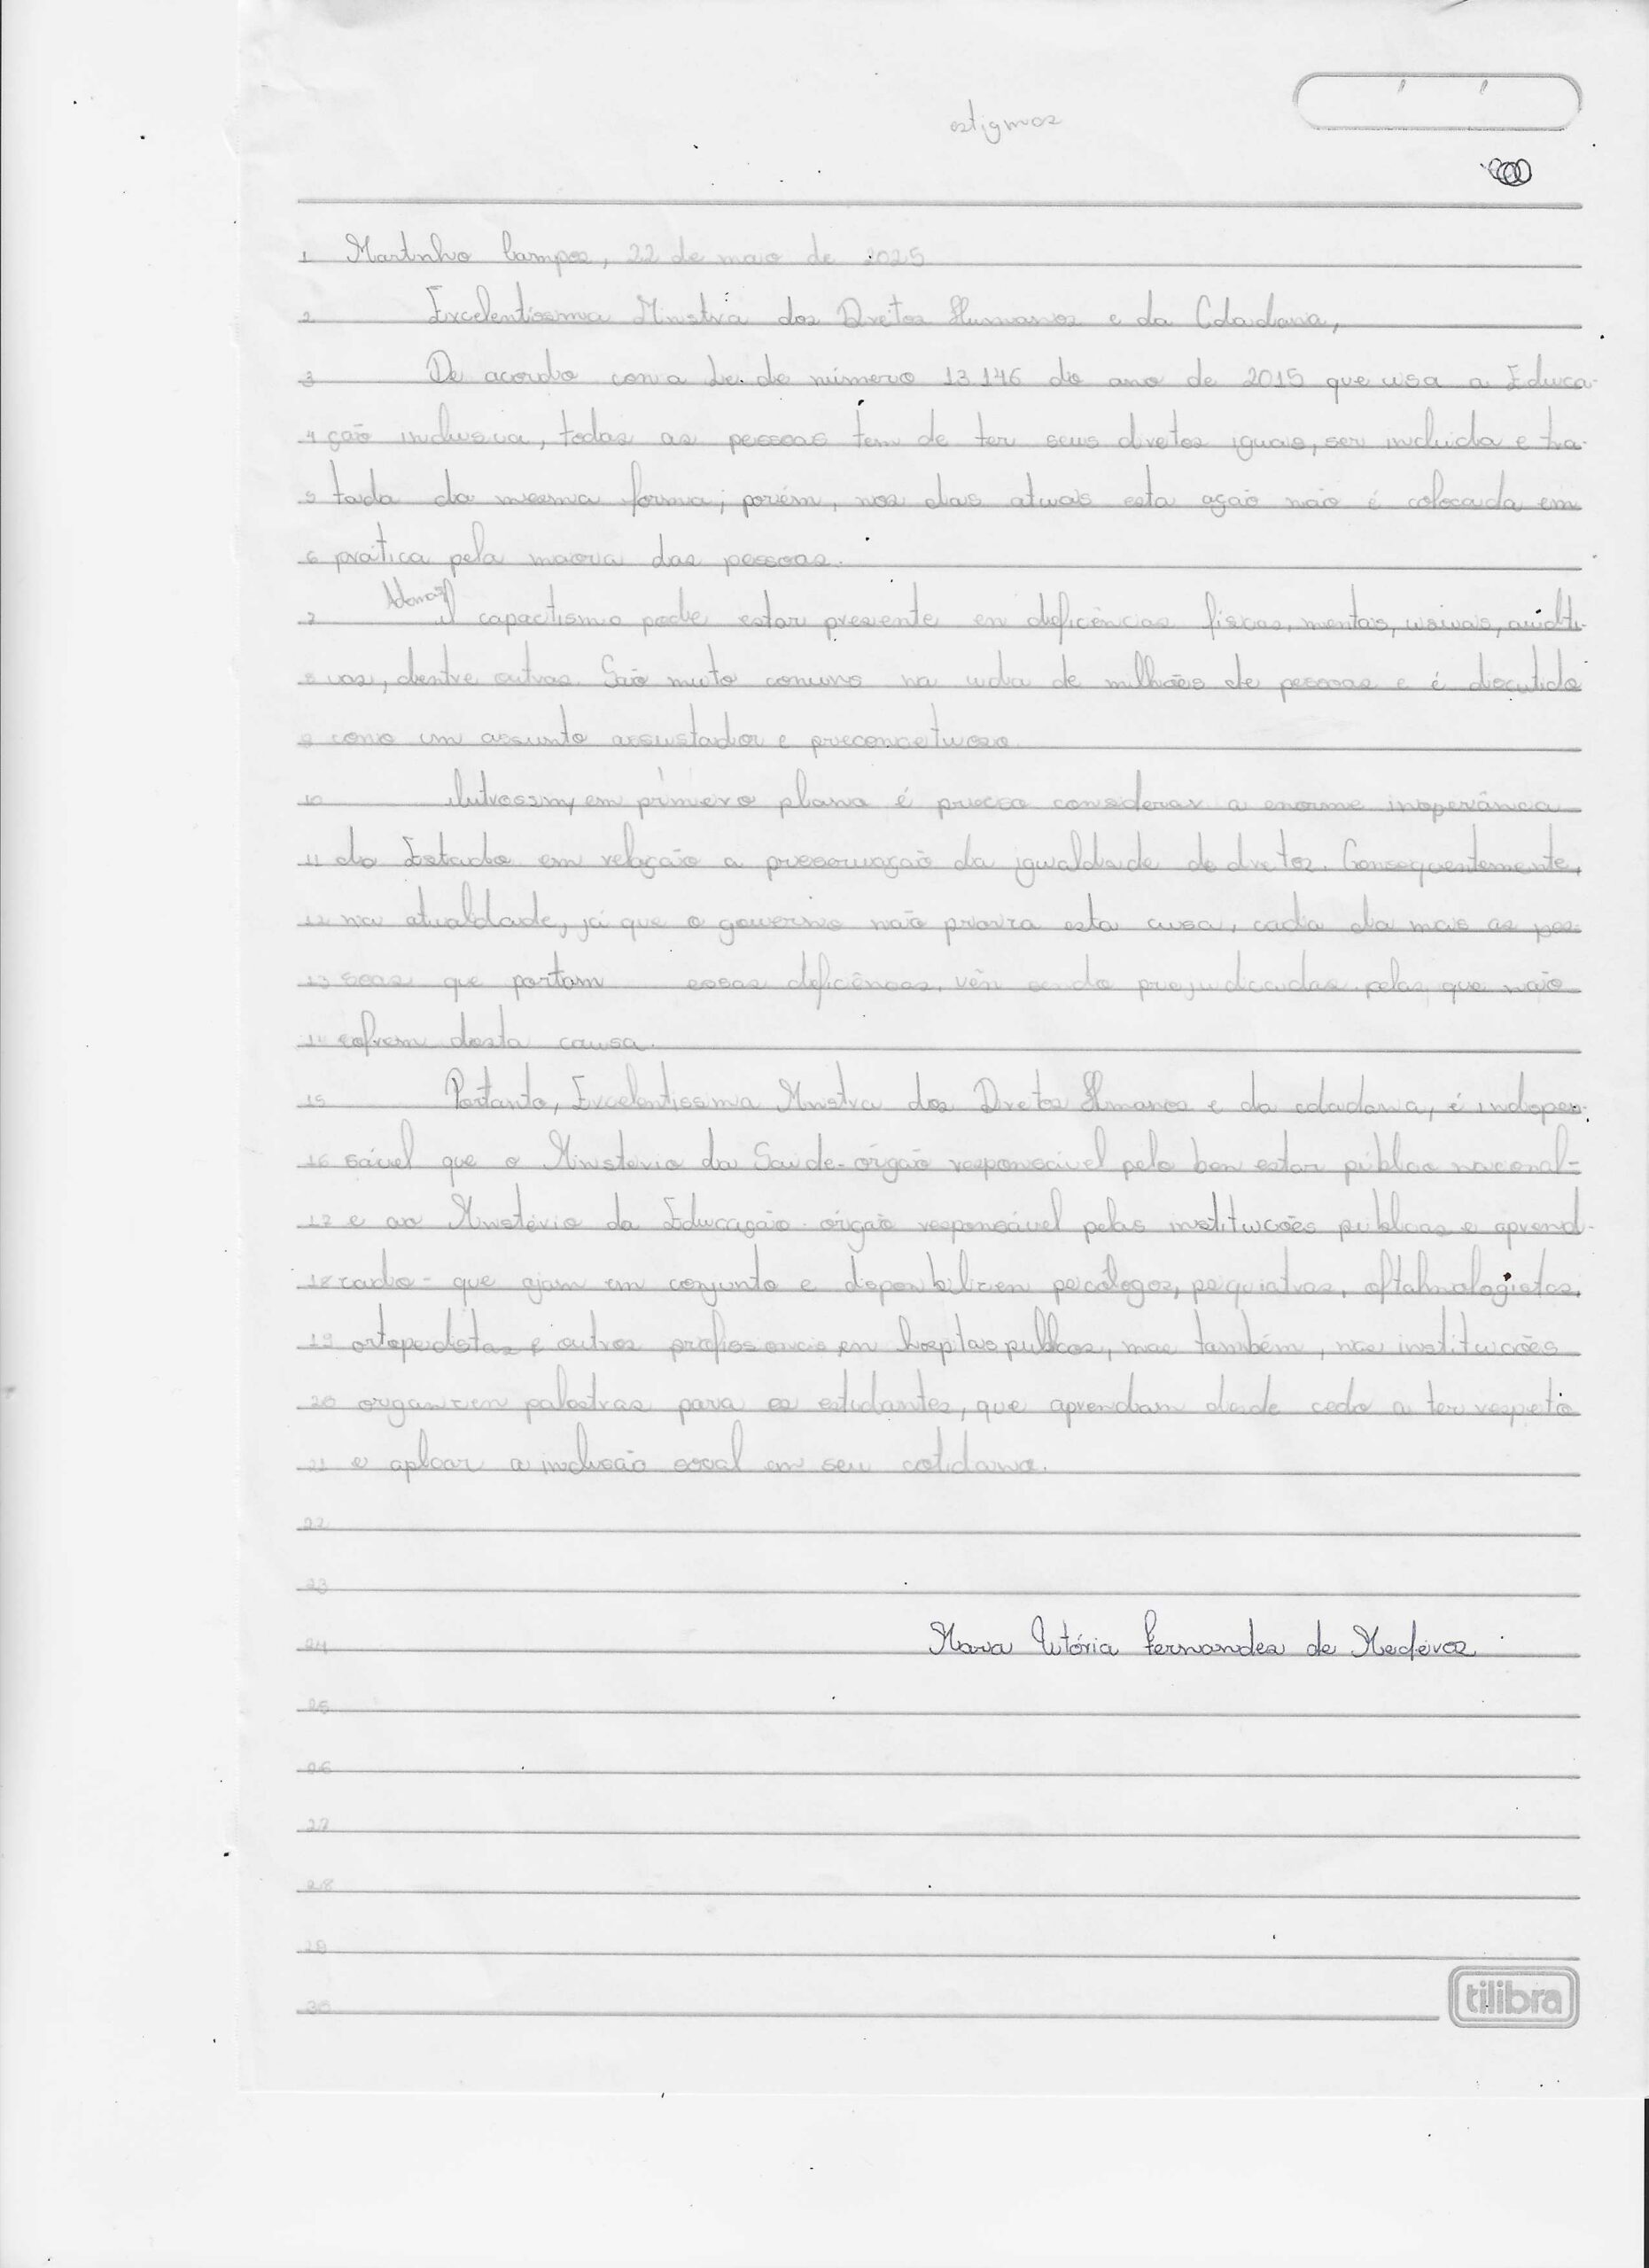 estigmas
1 Martinho Campos, 22 de maio de 2025
2 Excelentíssima Ministra dos Direitos Humanos e da Cidadania,
3 De acordo com a Lei de número 13.146 do ano de 2015 que visa a Educa-
4 ção inclusiva, todas as pessoas tem de ter seus direitos iguais, ser incluida e tra-
5 tada da mesma forma; porém, nos dias atuais esta ação não é colocada em
6 prática pela maioria das pessoas.
7 Ademais, O capacitismo pode estar presente em deficiências físicas, mentais, visuais, auditi-
8 vas, dentre outras. São muito comuns na vida de milhões de pessoas e é discutido
9 como um assunto assustador e preconceituoso.
10 Outrossim, em primeiro plano é preciso considerar a enorme inoperância
11 do Estado em relação a preservação da igualdade de direitos. Consequentemente,
12 na atualidade, já que o governo não prioriza esta causa, cada dia mais as pes-
13 soas que portam essas deficiências, vên sendo prejudicadas pelas que não
14 sofrem desta causa.
15 Portanto, Excelentissima Ministra dos Direitos Humanos e da cidadania, é indispen-
16 sável que o Ministério da Saúde - órgão responsável pelo bem estar público nacional -
17 e ao Ministério da Educação - órgão responsável pelas instituições públicas e aprendi-
18 zado - que ajam em conjunto e disponibilizem psicólogos, psiquiatras, oftalmologistas,
19 ortopedistas e outros profissionais em hospitais publicos, mas também, nas instituições
20 organizem palestras para os estudantes, que aprendam desde cedo a ter respeito
21 e aplicar a inclusão social em seu cotidiano.
22
23
24 Maria Vitória Fernandes de Medeiros
25
26
27
28
29
30
tilibra